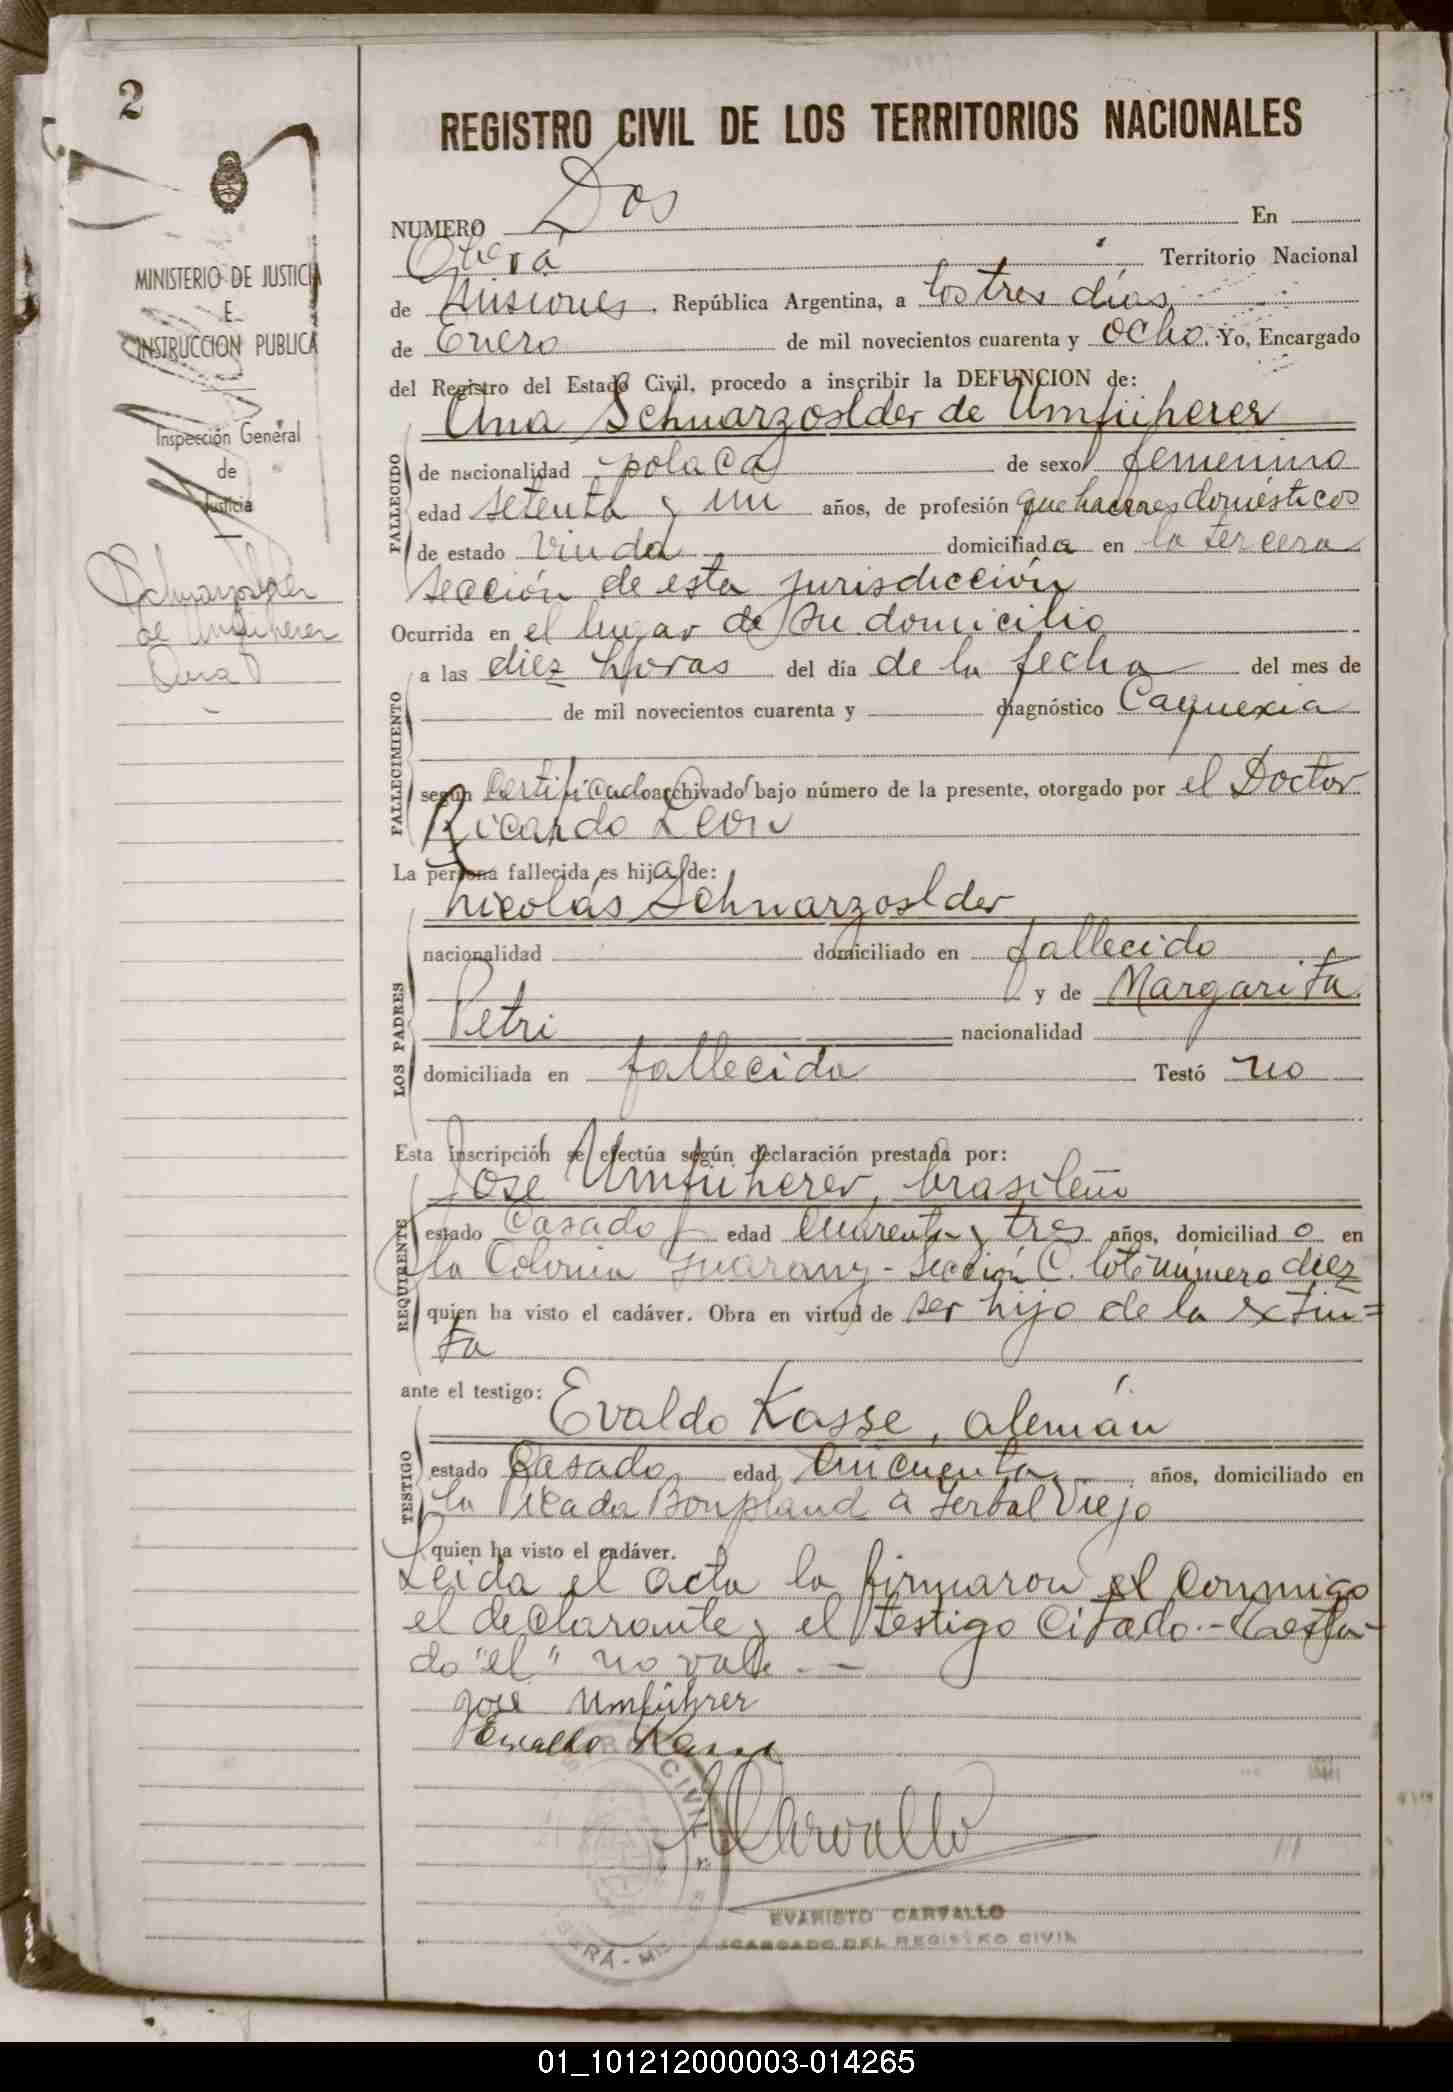 2
REGISTRO CIVIL DE LOS TERRITORIOS NACIONALES
MINISTERIO DE JUSTICIA
E
INSTRUCCION PUBLICA
Inspección General
de
Justicia
Schwarzoslder
de Umfüherer
Ana
NUMERO Dos En
Oberá Territorio Nacional
de Misiones, República Argentina, a los tres días
de Enero de mil novecientos cuarenta y ocho. Yo, Encargado
del Registro del Estado Civil, procedo a inscribir la DEFUNCION de:
Ana Schwarzoslder de Umfüherer
FALLECIDO
de nacionalidad polaca de sexo femenino
edad setenta y un años, de profesión quehaceres domésticos
de estado viuda domiciliada en la tercera
sección de esta jurisdicción
Ocurrida en el lugar de su domicilio
FALLECIMIENTO
a las diez horas del día de la fecha del mes de
de mil novecientos cuarenta y diagnóstico Caquexia
según certificado archivado bajo número de la presente, otorgado por el Doctor
Ricardo Leon
La persona fallecida es hija de:
LOS PADRES
Nicolás Schwarzoslder
nacionalidad domiciliado en fallecido
y de Margarita
Petri nacionalidad
domiciliada en fallecida Testó no
Esta inscripción se efectúa según declaración prestada por:
REQUIRENTE
José Umfüherer, brasileño
estado Casado edad cuarenta y tres años, domiciliado en
la Colonia Guarany - sección C. lote número diez
quien ha visto el cadáver. Obra en virtud de ser hijo de la extin=
ta
ante el testigo:
TESTIGO
Evaldo Kasse, alemán
estado Casado edad cincuenta años, domiciliado en
la Picada Bonpland a Yerbal Viejo
quien ha visto el cadáver.
Leida el acta la firmaron el conmigo
el declarante y el testigo citado.- Testa-
do "el" no vale.-
José Umführer
Evaldo Kasse
Carvallo
EVARISTO CARVALLO
ENCARGADO DEL REGISTRO CIVIL
01_101212000003-014265